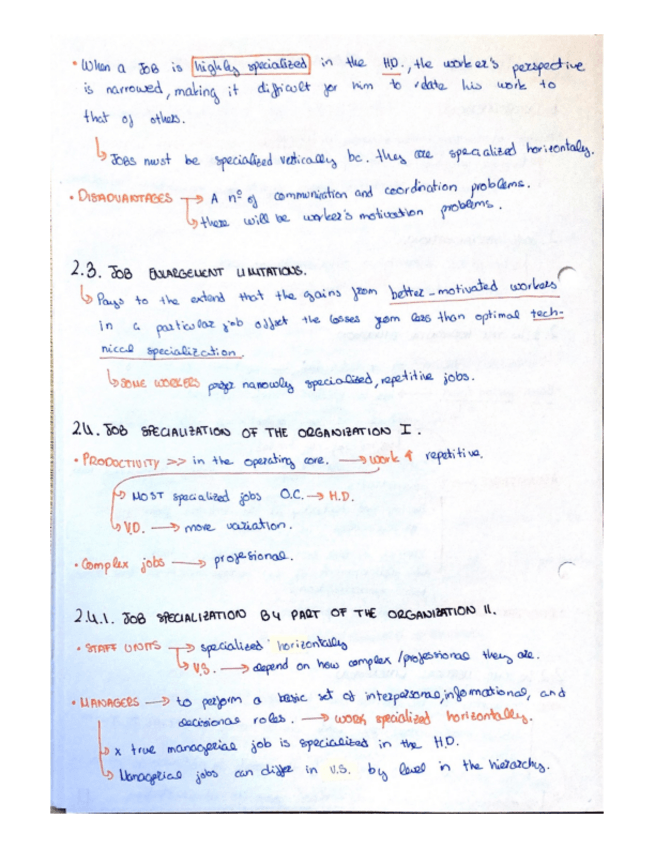 • When a JOB is highly specialized in the H.D., the worker's perspective
is narrowed, making it difficult for him to relate his work to
that of others.
↳ JOBS must be specialized vertically bc. they are specialized horizontally.
• DISADVANTAGES → A nº of communication and coordination problems.
↳ there will be worker's motivation problems.
2.3. JOB ENLARGEMENT LIMITATIONS.
↳ Pays to the extend that the gains from better-motivated workers
in a particular job offset the losses from less than optimal tech-
nical specialization.
↳ SOME WORKERS prefer narrowly specialized, repetitive jobs.
2.4. JOB SPECIALIZATION OF THE ORGANIZATION I.
• PRODUCTIVITY >> in the operating core. → work ↑ repetitive.
↳ MOST specialized jobs O.C. → H.D.
↳ V.D. → more variation.
• Complex jobs → professional.
2.4.1. JOB SPECIALIZATION BY PART OF THE ORGANIZATION II.
• STAFF UNITS → specialized horizontally
↳ V.S. → depend on how complex/professional they are.
• MANAGERS → to perform a basic set of interpersonal, informational, and
decisional roles. → work specialized horizontally.
↳ x true managerial job is specialized in the H.D.
↳ Managerial jobs can differ in V.S. by level in the hierarchy.